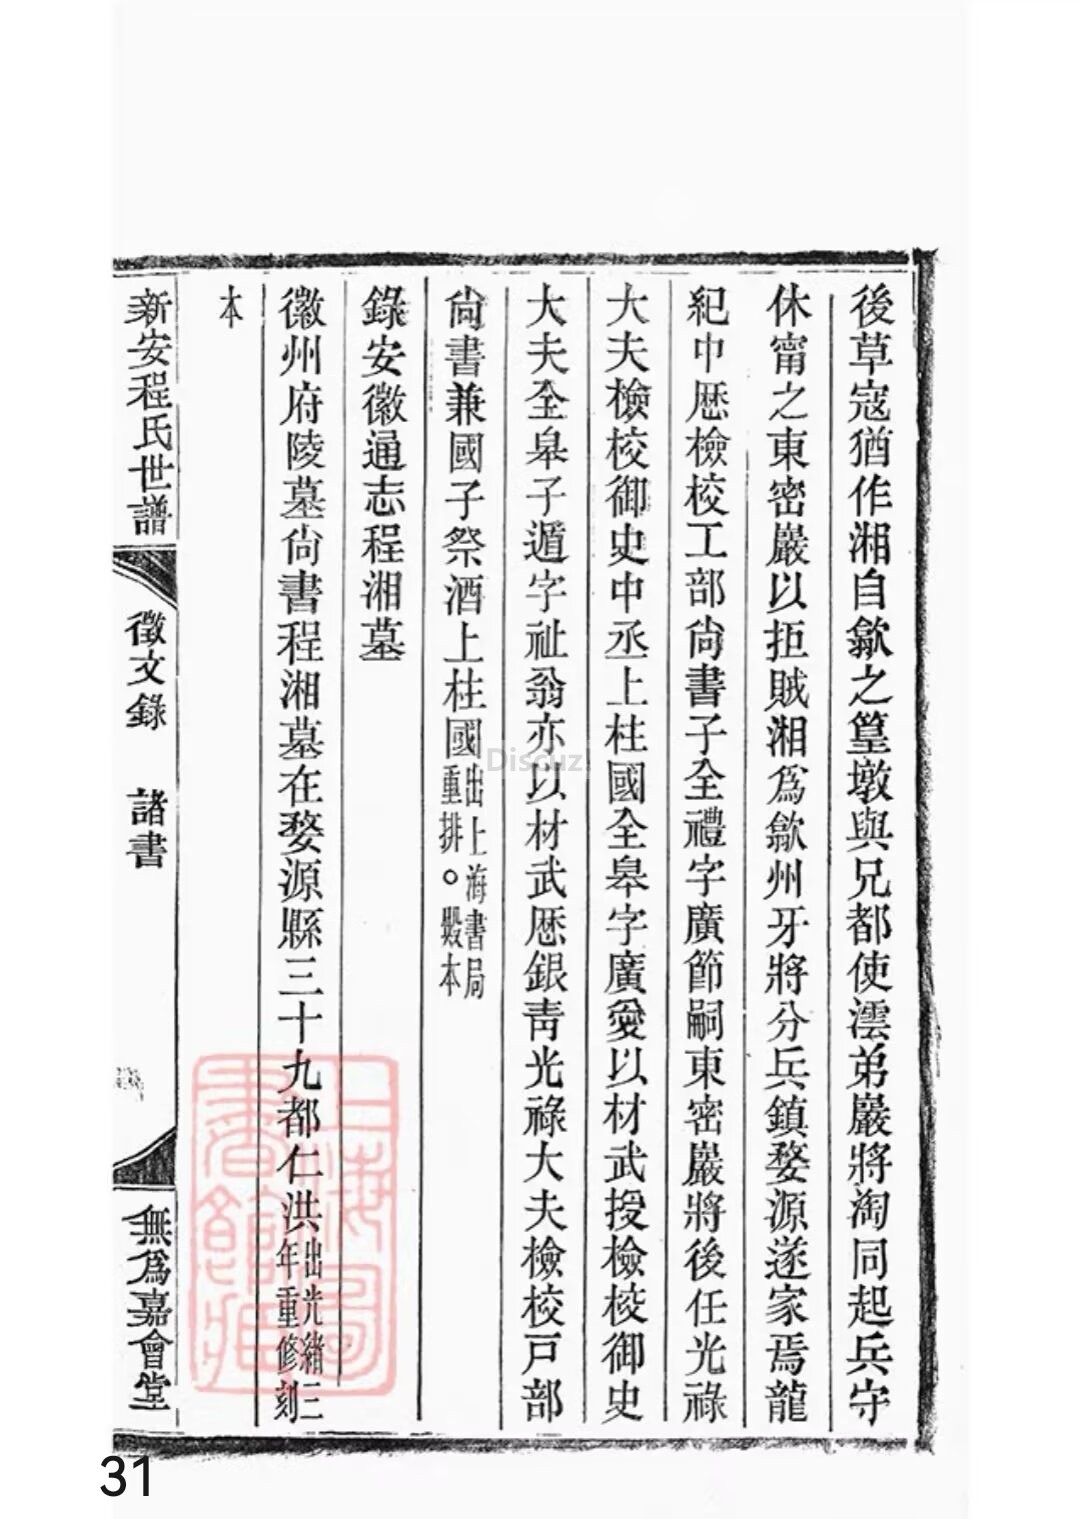 後草寇猶作湘自歙之篁墩與兄都使澐弟巖將淘同起兵守
休甯之東密巖以拒賊湘爲歙州牙將分兵鎮婺源遂家焉龍
紀中歷檢校工部尚書子全禮字廣節嗣東密巖將後任光祿
大夫檢校御史中丞上柱國全皋字廣愛以材武授檢校御史
大夫全皋子遁字祉翁亦以材武歷銀青光祿大夫檢校戸部
尚書兼國子祭酒上柱國出上海書局
重排。殿本
錄安徽通志程湘墓
徽州府陵墓尚書程湘墓在婺源縣三十九都仁洪出光緒三
年重修刻
本
新安程氏世譜
徵文錄 諸書
無爲嘉會堂
上海圖書館藏
Discuz!
31